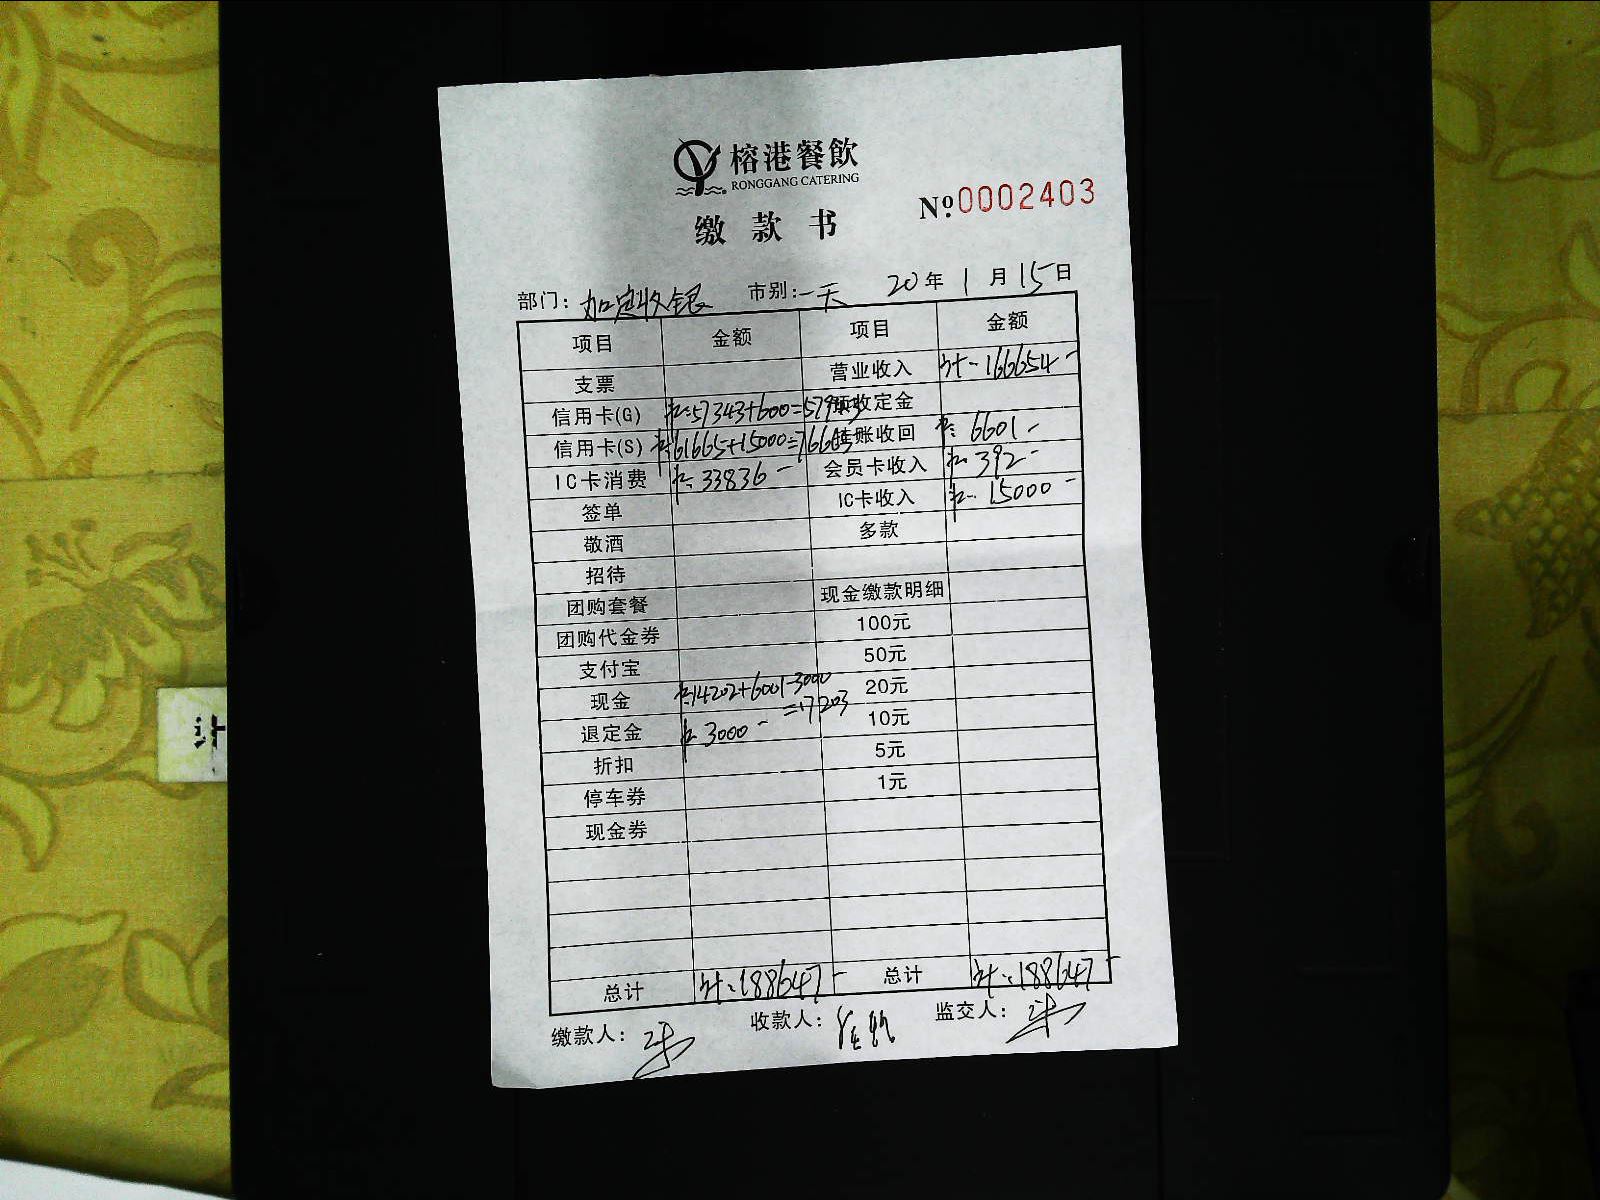 榕港餐飲
RONGGANG CATERING
缴款书
№:0002403
部门: 加定收银 市别: 一天 20年1月15日
项目 金额 项目 金额
支票 营业收入 计:166654-
信用卡(G) 57343+600=57943 预收定金
信用卡(S) 61665+15000=76665 转账收回 6601-
IC卡消费 33836- 会员卡收入 392-
签单 IC卡收入 15000-
敬酒 多款
招待
团购套餐 现金缴款明细
团购代金券 100元
支付宝 50元
现金 14202+6001-3000=17203 20元
退定金 3000- 10元
折扣 5元
停车券 1元
现金券
总计 计:188647- 总计 计:188647-
缴款人: 收款人: 监交人:
计